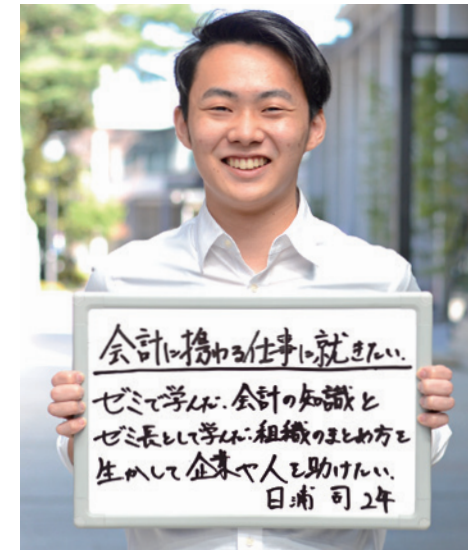 会計に携わる仕事に就きたい.
ゼミで学んだ.会計の知識と
ゼミ長として学んだ.組織のまとめ方を
生かして企業や人を助けたい.
日浦 司 2年